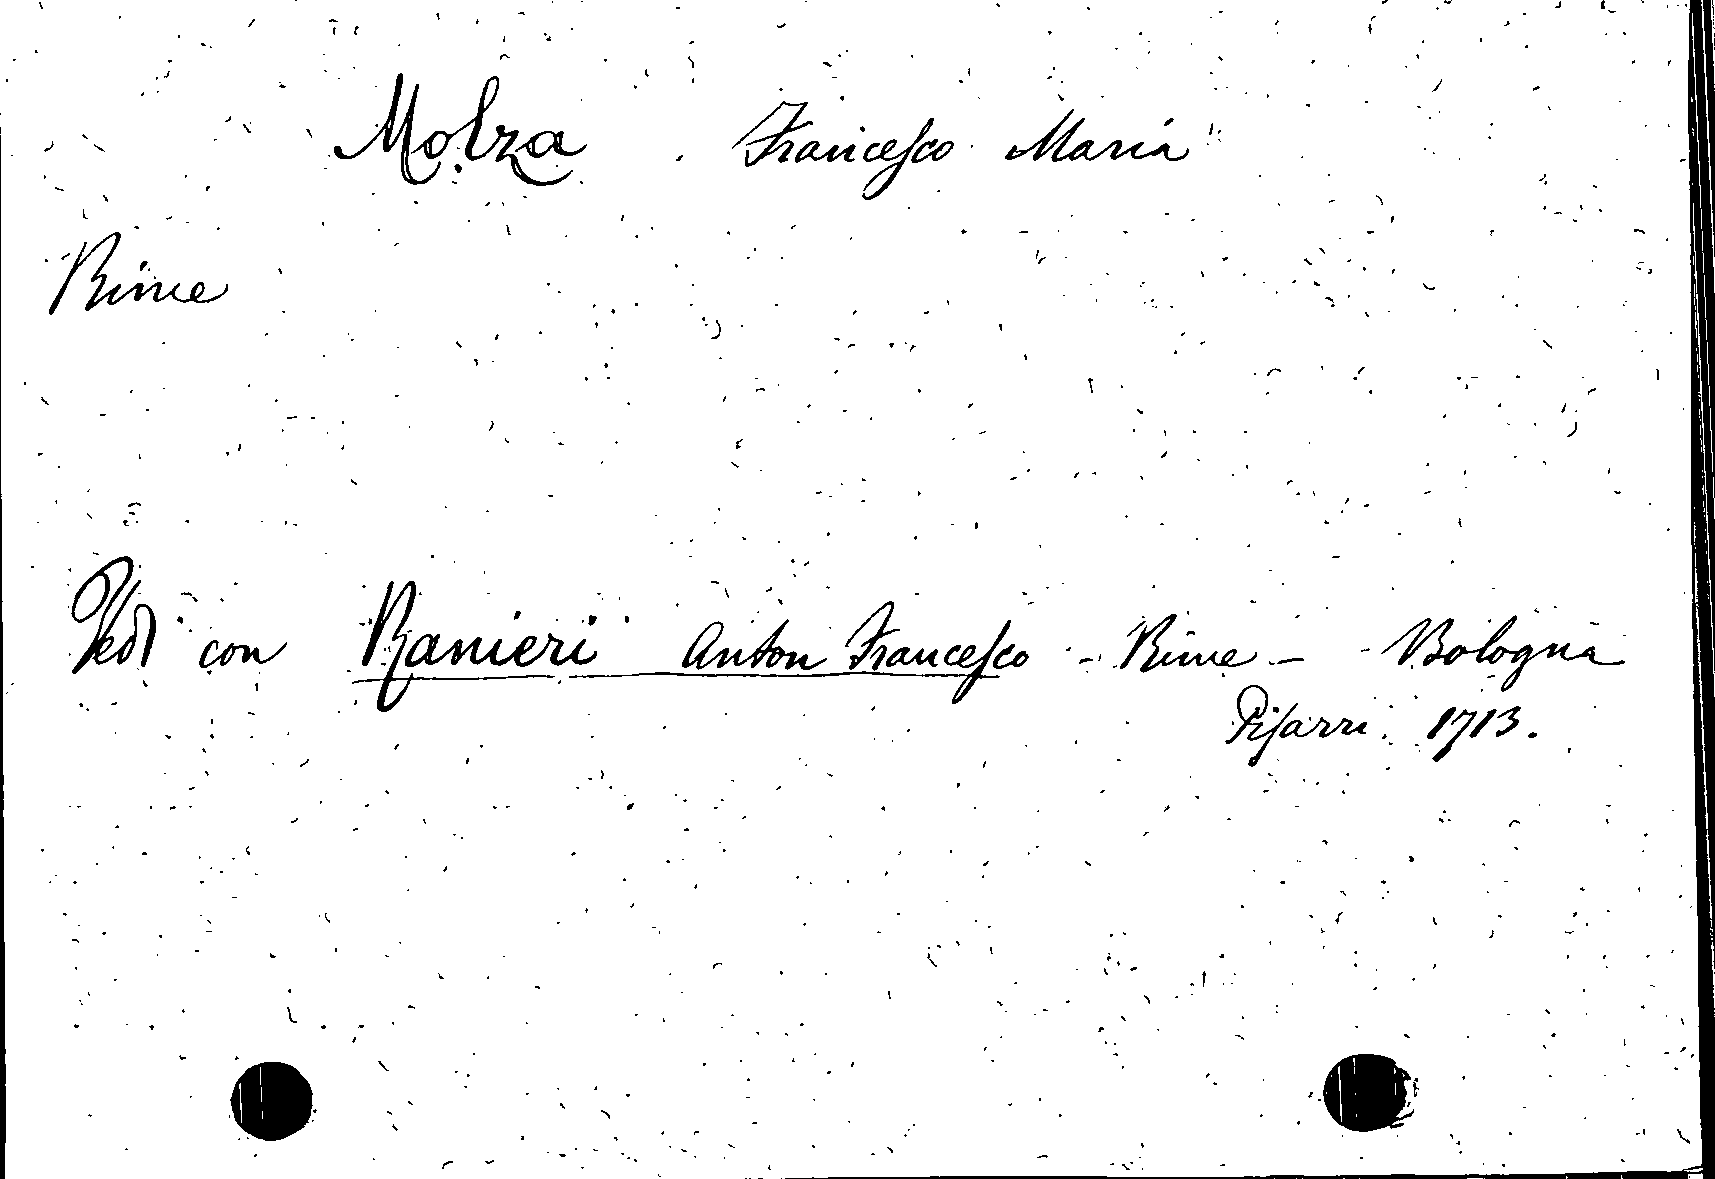 Molza Francesco Maria
Rime
Vedi con Ranieri Anton Francesco - Rime - Bologna
Pisarri 1713.